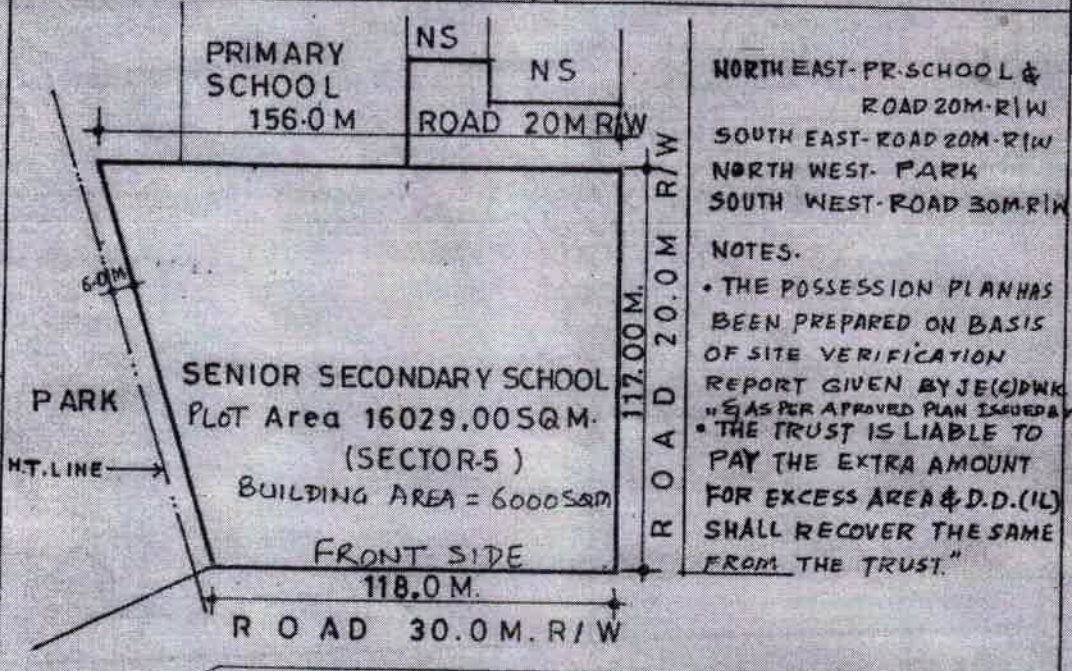 PRIMARY
SCHOOL
156.0 M
NS
NS
ROAD 20M R/W
6.0 M
PARK
H.T. LINE
SENIOR SECONDARY SCHOOL
PLOT Area 16029.00 SQM.
(SECTOR-5)
BUILDING AREA = 6000 SQM
FRONT SIDE
118.0 M.
ROAD 30.0 M. R/W
117.00 M.
ROAD 20.0 M R/W
NORTH EAST- PR. SCHOOL &
ROAD 20M-R/W
SOUTH EAST- ROAD 20M-R/W
NORTH WEST- PARK
SOUTH WEST- ROAD 30M-R/W
NOTES.
• THE POSSESSION PLAN HAS
BEEN PREPARED ON BASIS
OF SITE VERIFICATION
REPORT GIVEN BY JE(C)DWK
" & AS PER APROVED PLAN ISSUED
• THE TRUST IS LIABLE TO
PAY THE EXTRA AMOUNT
FOR EXCESS AREA & D.D.(IL)
SHALL RECOVER THE SAME
FROM THE TRUST."